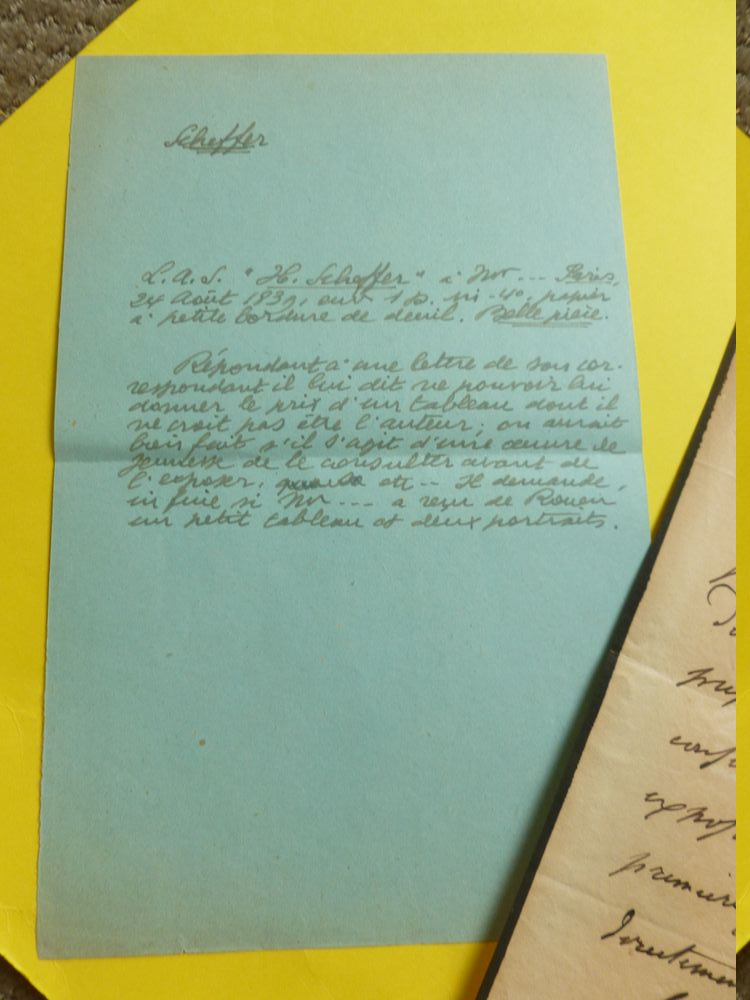 Scheffer
L.A.S. "H. Scheffer" à Mr --- Paris,
24 Août 1839, sur 1 p. in-4°, papier
à petite bordure de deuil. Belle pièce.
Répondant à une lettre de son cor-
respondant il lui dit ne pouvoir lui
donner le prix d'un tableau dont il
ne croit pas être l'auteur; on aurait
bien fait s'il s'agit d'une œuvre de
jeunesse de le consulter avant de
l'exposer, etc -- Il demande,
in fine si Mr --- a reçu de Rouen
un petit tableau et deux portraits.
premiere